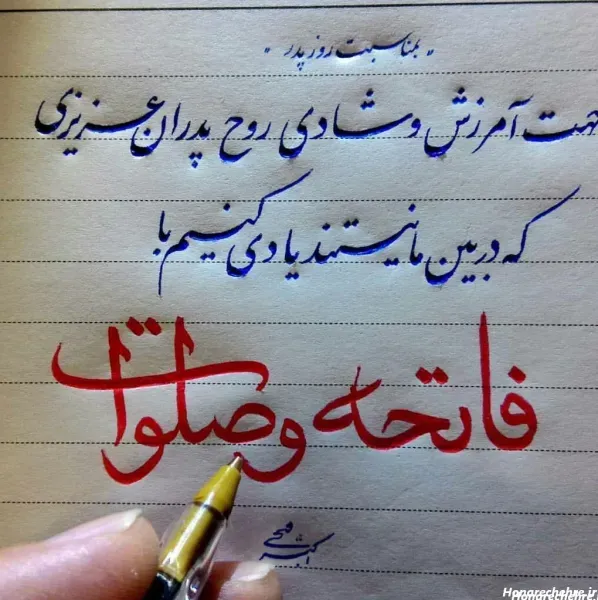 " بمناسبت روز پدر "
جهت آمرزش و شادی روح پدران عزیزی
که در بین ما نیستند یادی کنیم با
فاتحه و صلوات
Honarechehre.ir
Honarechehre.